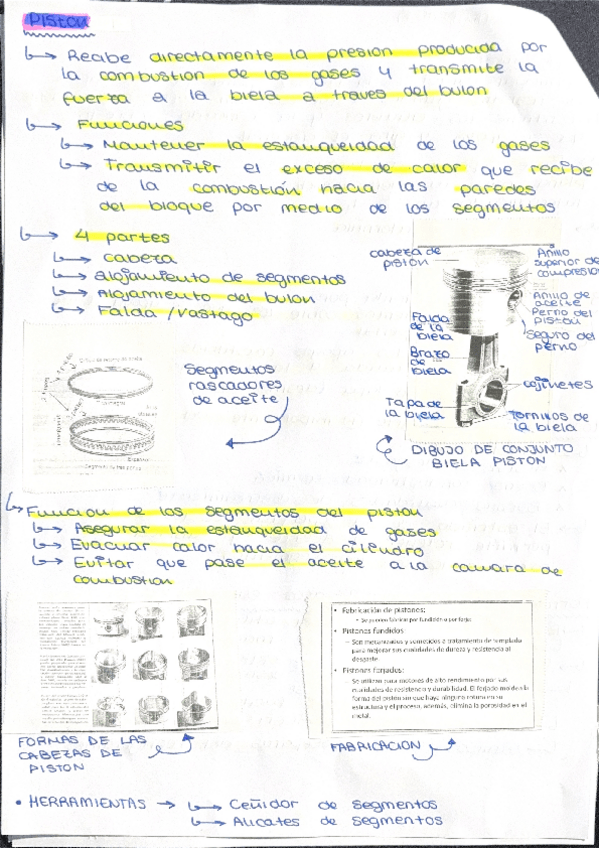 PISTON
↳ Recibe directamente la presion producida por
la combustion de los gases y transmite la
fuerza a la biela a traves del bulon
↳ Funciones
↳ Mantener la estanqueidad de los gases
↳ Transmitir el exceso de calor que recibe
de la combustión hacia las paredes
del bloque por medio de los segmentos
↳ 4 partes
↳ cabeza
↳ alojamiento de segmentos
↳ Alojamiento del bulon
↳ Falda / Vastago
cabeza de
piston
Anillo
superior de
compresion
Anillo de
aceite
Perno del
piston
Seguro del
perno
Falda
de la
biela
Brazo
de
biela
cojinetes
Tapa de
la biela
Tornillos de
la biela
DIBUJO DE CONJUNTO
BIELA PISTON
Segmentos
rascadores
de aceite
↳ Funcion de los segmentos del piston
↳ Asegurar la estanqueidad de gases
↳ Evacuar calor hacia el cilindro
↳ Evitar que pase el aceite a la camara de
combustion
FORMAS DE LAS
CABEZAS DE
PISTON
• Fabricación de pistones:
• Se pueden fabricar por fundición o por forja:
• Pistones fundidos
– Son mecanizados y sometidos a tratamiento de templado
para mejorar sus cualidades de dureza y resistencia al
desgaste.
• Pistones forjados:
– Se utilizan para motores de alto rendimiento por sus
cualidades de resistencia y durabilidad. El forjado moldea la
forma del pistón sin que haya ninguna rotura en su
estructura y el proceso, además, elimina la porosidad en el
metal.
FABRICACION
• HERRAMIENTAS → ↳ Ceñidor de segmentos
↳ Alicates de segmentos